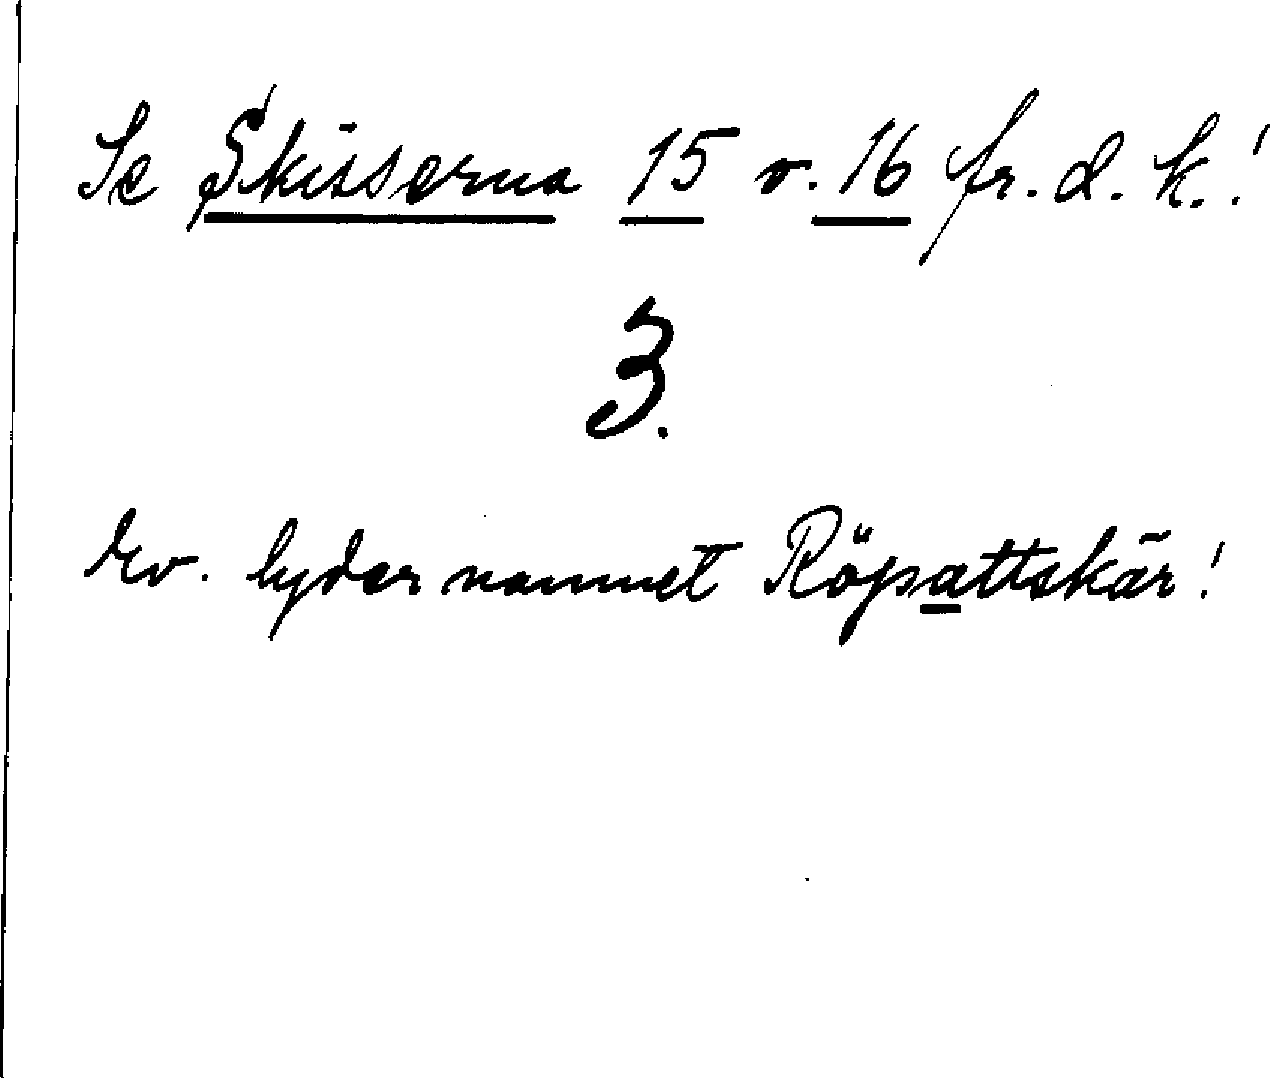 Se Skisserna 15 o. 16 fr. d. k.!
3.
Ev. lyder namnet Röpattskär!